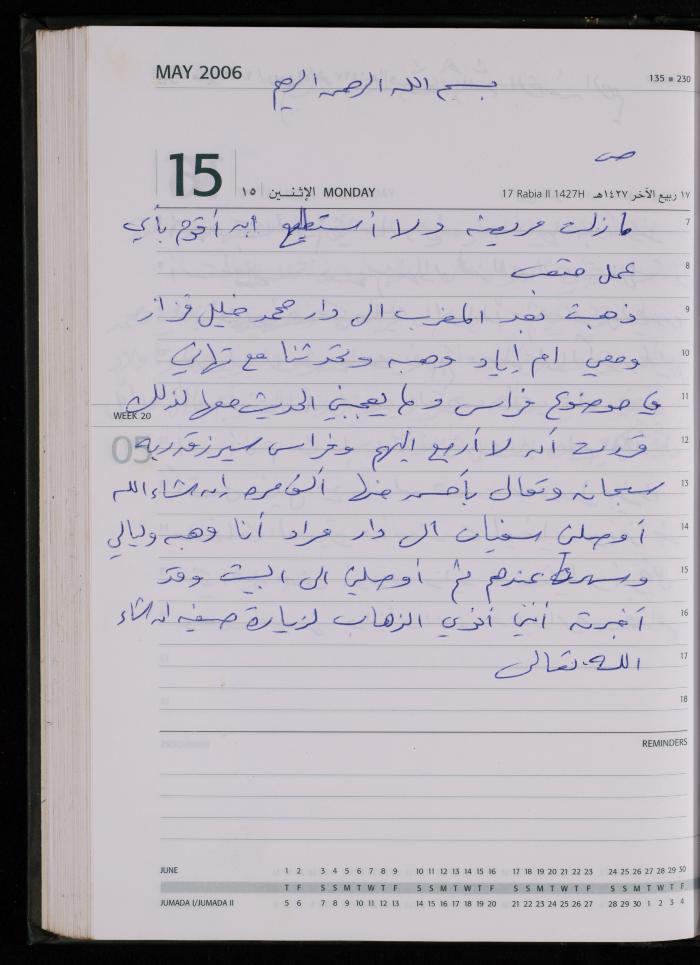 MAY 2006
135 ■ 230
بسم الله الرحمن الرحيم
ص
15 ١٥ الإثنين MONDAY
17 Rabia II 1427H ١٧ ربيع الآخر ١٤٢٧هـ
7 مازلت مريضة ولا أستطيع ان أقوم بأي
8 عمل متعب
9 ذهبت بعد المغرب ال دار محمد خليل قزاز
10 ومعي ام اياد وهبه وتحدثنا مع تهاني
11 في موضوع فراس ولم يعجبني الحديث معها لذلك
WEEK 20
05
12 قررت أن لا أرجع اليهم وفراس سيرزقه ربه
13 سبحانه وتعالى بأحسن منها ألف مره إن شاء الله
14 أوصلني سفيان ال دار مراد أنا وهبه وليالي
15 وسهرت عندهم ثم أوصلني الى البيت وقد
16 أخبرته أنني أنوي الذهاب لزيارة صفيه ان شاء
17 الله تعالى
18
REMINDERS
JUNE 1 2 3 4 5 6 7 8 9 10 11 12 13 14 15 16 17 18 19 20 21 22 23 24 25 26 27 28 29 30
T F S S M T W T F S S M T W T F S S M T W T F S S M T W T F
JUMADA I/JUMADA II 5 6 7 8 9 10 11 12 13 14 15 16 17 18 19 20 21 22 23 24 25 26 27 28 29 30 1 2 3 4